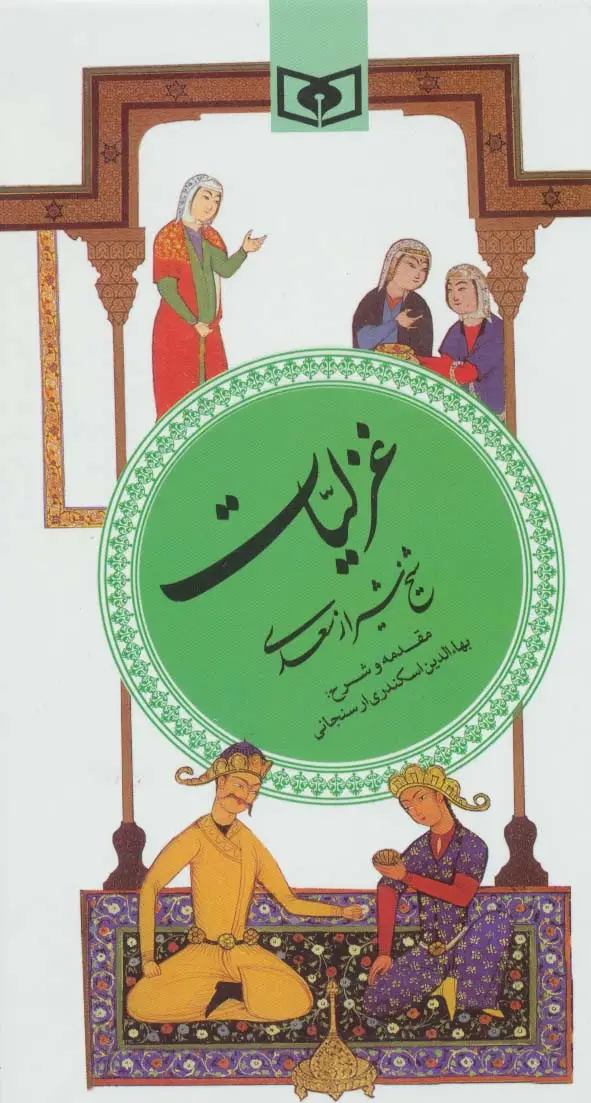 غزلیّات
شیخ شیراز سعدی
مقدمه و شرح:
بهاءالدین اسکندری ارسنجانی